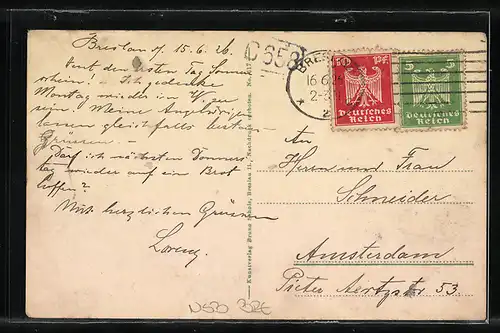 Breslau d. 15.6.26
C 658
Heut den ersten Tag Sonnen
schein! Ich gedenke
Montag wieder in
sein. Meine Angehörigen
lassen gleichfalls
Grüssen.
Darf ich nächsten Donners
tag wieder auf ein Brot
hoffen?
Mit herzlichen Grüssen
Lorenz
BRES
16.6.
10 Pf.
Deutsches
Reich
5 5
Deutsches
Reich
An
Herrn und Frau
Schneider
Amsterdam
Pieter Aertzstr 53.
Kunstverlag Bruno Scholz, Breslau 11, Nachdruck verboten.